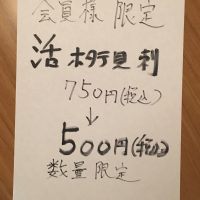 会員様 限定
活 ホタテ貝 刺
750円(税込)
↓
500円(税込)
数量限定